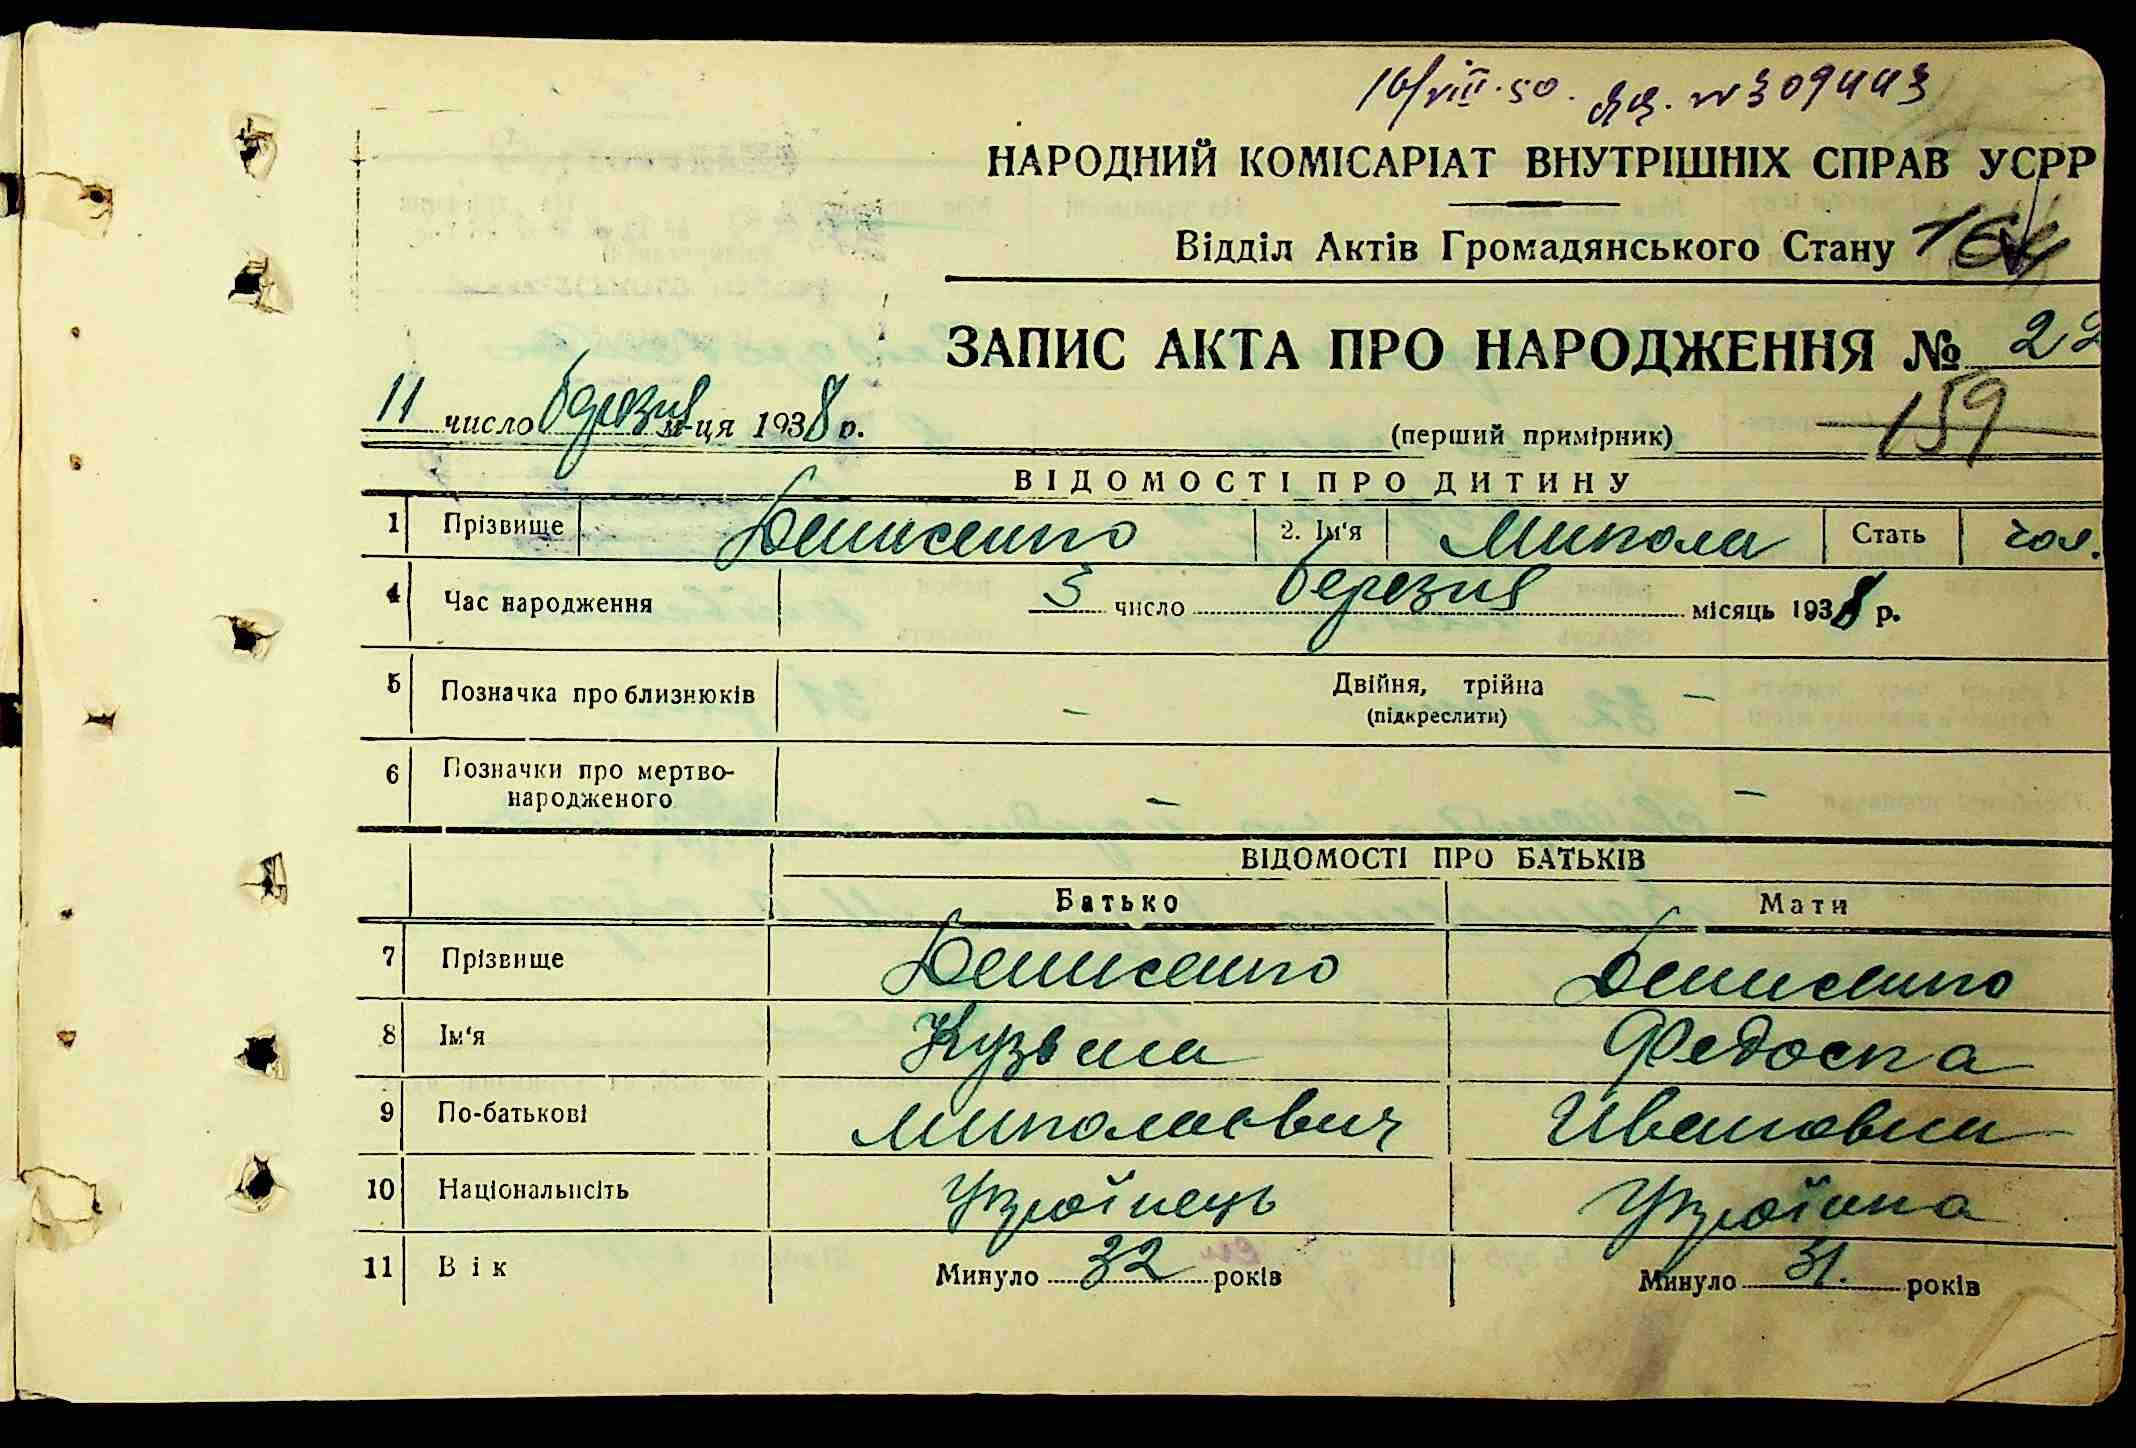 16/VIII-50. дц. № 309443
НАРОДНИЙ КОМІСАРІАТ ВНУТРІШНІХ СПРАВ УСРР
Відділ Актів Громадянського Стану 164
ЗАПИС АКТА ПРО НАРОДЖЕННЯ № 22
11 число березня м-ця 1938 р.
(перший примірник) 159
ВІДОМОСТІ ПРО ДИТИНУ
1 Прізвище Денисенко 2. Ім'я Микола Стать чол.
4 Час народження 3 число березня місяць 1938 р.
5 Позначка про близнюків – Двійня, трійна –
(підкреслити)
6 Позначки про мертво-
народженого – –
ВІДОМОСТІ ПРО БАТЬКІВ
Батько Мати
7 Прізвище Денисенко Денисенко
8 Ім'я Кузьма Федоска
9 По-батькові Миколаєвич Ивановна
10 Національність Українець Українка
11 Вік Минуло 32 років Минуло 31. років